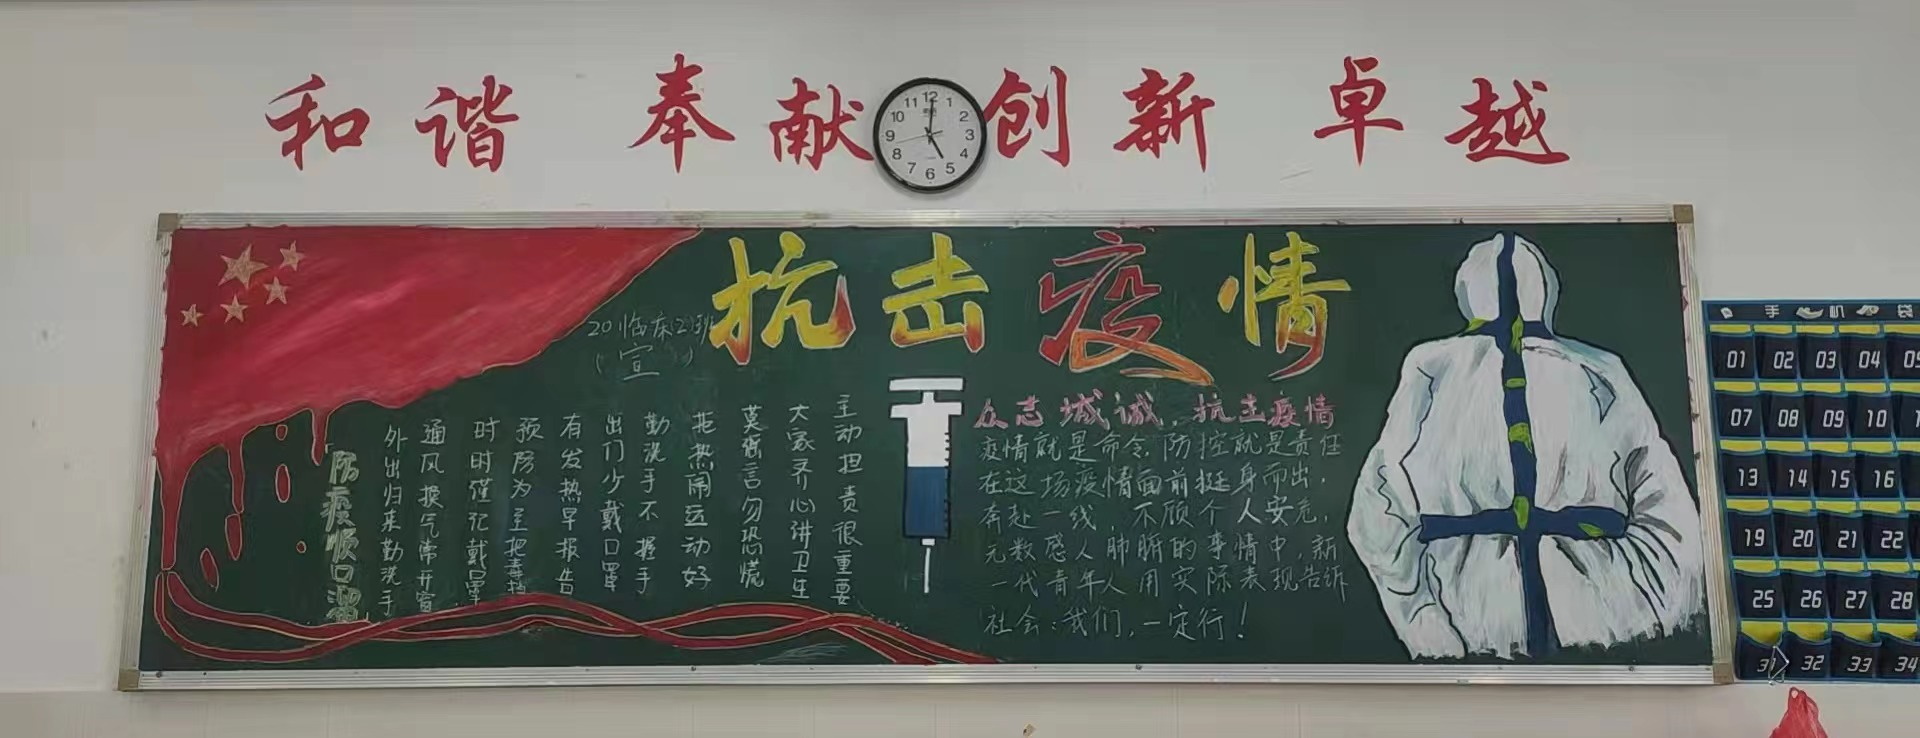 和谐 奉献 创新 卓越
12
1
2
3
4
5
6
7
8
9
10
11
抗击疫情
20临床(2)班
(宣)
防疫顺口溜
外出归来勤洗手
通风换气常开窗
时时谨记戴口罩
预防为主把毒挡
有发热早报告
出门少戴口罩
勤洗手不握手
拒热闹运动好
莫谣言勿恐慌
大家齐心讲卫生
主动担责很重要
众志城诚,抗击疫情
疫情就是命令,防控就是责任
在这一场疫情面前挺身而出,
奔赴一线,不顾个人安危,
无数感人肺腑的事情中,新
一代青年人用实际表现告诉
社会:我们,一定行!
手机袋
01 02 03 04 05
07 08 09 10
13 14 15 16
19 20 21 22
25 26 27 28
31 32 33 34